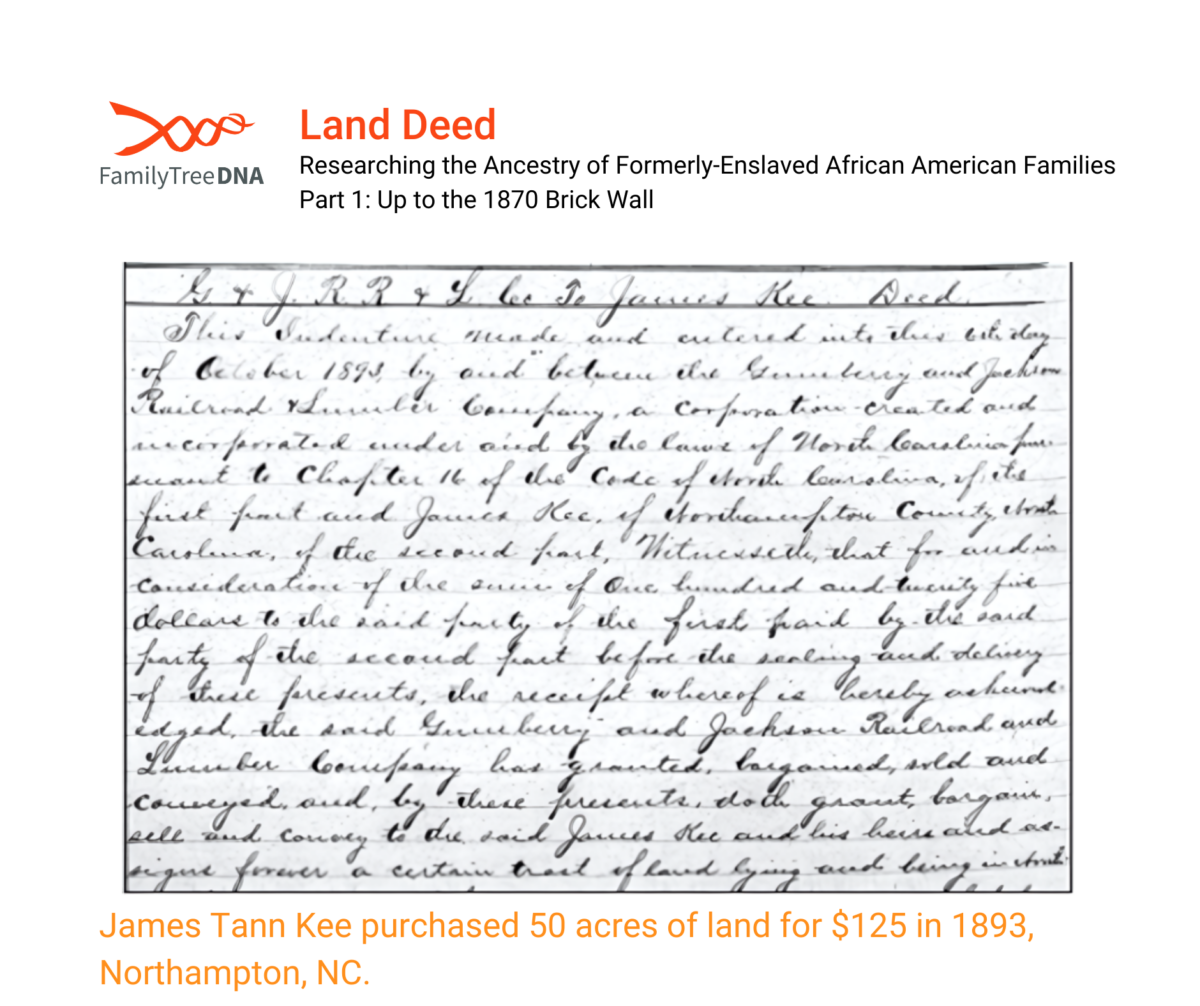 FamilyTreeDNA
Land Deed
Researching the Ancestry of Formerly-Enslaved African American Families
Part 1: Up to the 1870 Brick Wall
G & J. R R & L Co To James Kee Deed
This Indenture made and entered into this 6th day
of October 1893, by and between the Gumberry and Jackson
Railroad & Lumber Company, a corporation created and
incorporated under and by the laws of North Carolina pur-
suant to Chapter 16 of the Code of North Carolina, of the
first part and James Kee, of Northampton County, North
Carolina, of the second part, Witnesseth, that for and in
consideration of the sum of One hundred and twenty five
dollars to the said party of the first paid by the said
party of the second part before the sealing and delivery
of these presents, the receipt whereof is hereby acknowl-
edged, the said Gumberry and Jackson Railroad and
Lumber Company has granted, bargained, sold and
conveyed, and, by these presents, doth grant, bargain,
sell and convey to the said James Kee and his heirs and as-
signs forever a certain tract of land lying and being in North-
James Tann Kee purchased 50 acres of land for $125 in 1893,
Northampton, NC.